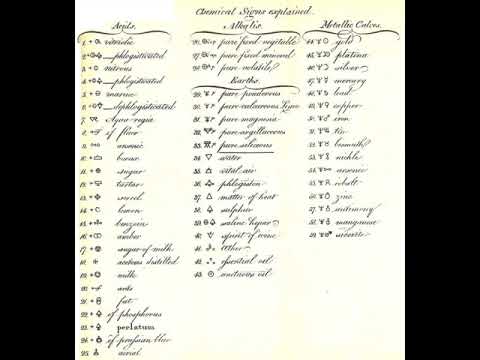 Chemical Signs explained.
Acids.
1. vitriolic
2. phlogisticated
3. nitrous
4. phlogisticated
5. marine
6. dephlogisticated
7. Aqua regia
8. of fluor
9. arsenic
10. borax
11. sugar
12. tartar
13. sorrel
14. lemon
15. benzoin
16. amber
17. sugar of milk
18. acetous distilled
19. milk
20. ants
21. fat
22. of phosphorus
23. perlatum
24. of prussian blue
25. aerial
Alkalis.
26. pure fixed vegitable
27. pure fixed mineral
28. pure volatile
Earths.
29. pure ponderous
30. pure calcareous Lime
31. pure magnesia
32. pure argillaceous
33. pure siliceous
34. water
35. vital air
36. phlogiston
37. matter of heat
38. sulphur
39. saline hepar
40. spirit of wine
41. æther
42. essential oil
43. unctuous oil
Metallic Calces.
44. gold
45. platina
46. silver
47. mercury
48. lead
49. copper
50. iron
51. tin
52. bismuth
53. nickle
54. arsenic
55. cobalt
56. zinc
57. antimony
58. manganese
59. siderite